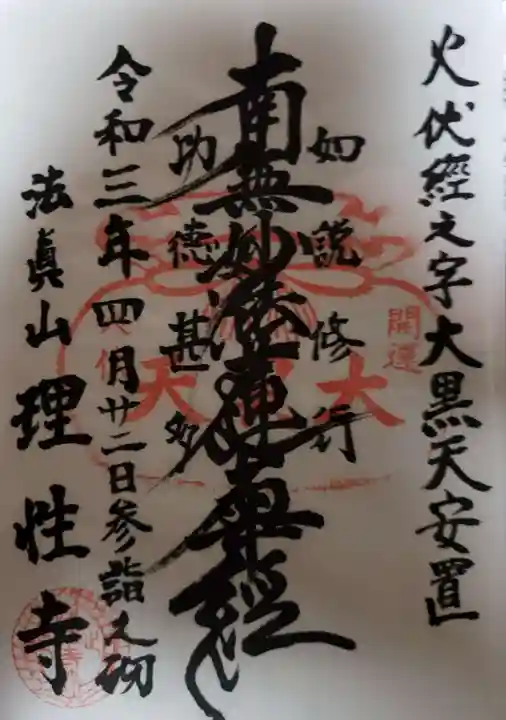 火伏經文字大黒天安置
開運
大黒天
如説修行
南無妙法蓮華經
助徳甚多
令和三年四月廿二日参詣之砌
法眞山理性寺